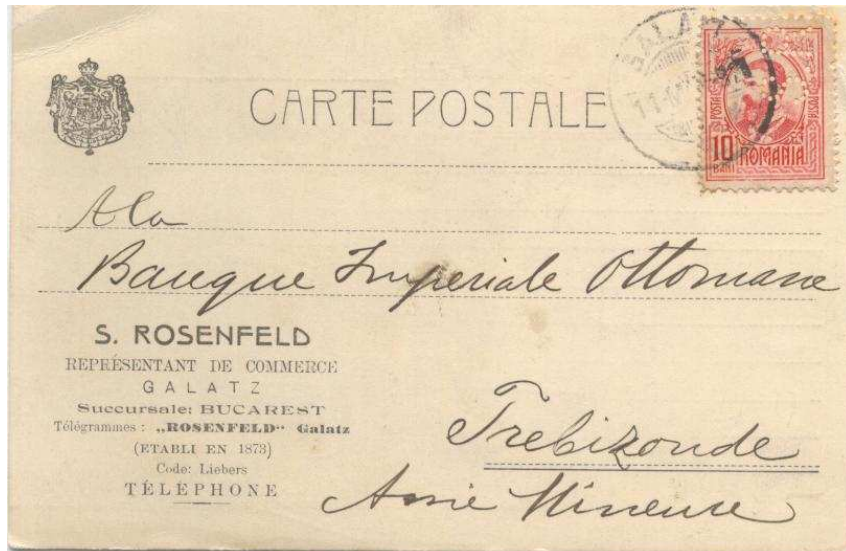 CARTE POSTALE
GALATZ
POSTA
10
BANI
ROMANIA
A la
Banque Imperiale Ottomane
S. ROSENFELD
REPRÉSENTANT DE COMMERCE
GALATZ
Succursale: BUCAREST
Télégrammes: „ROSENFELD“ Galatz
(ETABLI EN 1873)
Code: Liebers
TÉLÉPHONE
Trebizonde
Assie Mineure